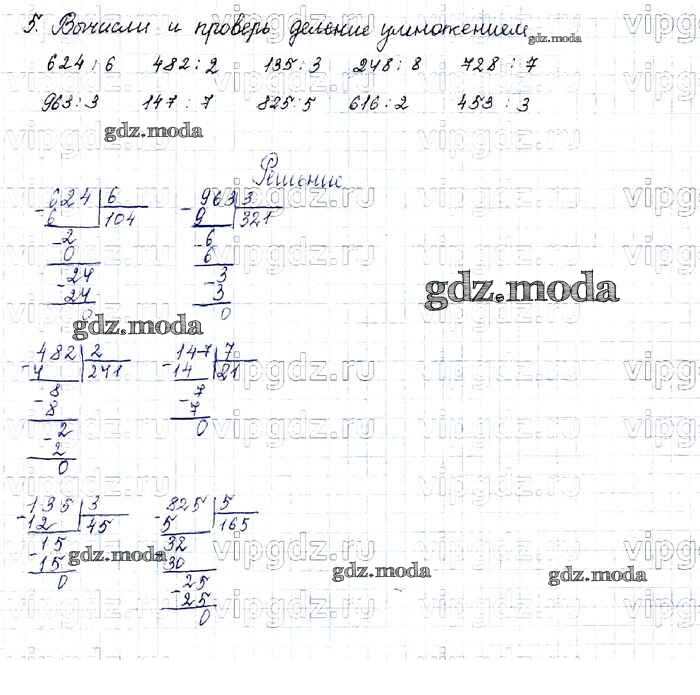 5. Вычисли и проверь деление умножением
gdz.moda
624 : 6 482 : 2 135 : 3 248 : 8 728 : 7
963 : 3 147 : 7 825 : 5 616 : 2 453 : 3
gdz.moda
Решение
vipgdz.ru
- 624 | 6 - 963 | 3
6 104 9 321
- 2 - 6
0 6
- 24 - 3
24 3
0 0
gdz.moda
gdz.moda
- 482 | 2 - 147 | 7
4 241 14 21
- 8 - 7
8 7
- 2 0
2
0
- 135 | 3 - 825 | 5
12 45 5 165
- 15 - 32
15 30
0 - 25
25
0
gdz.moda
gdz.moda
gdz.moda